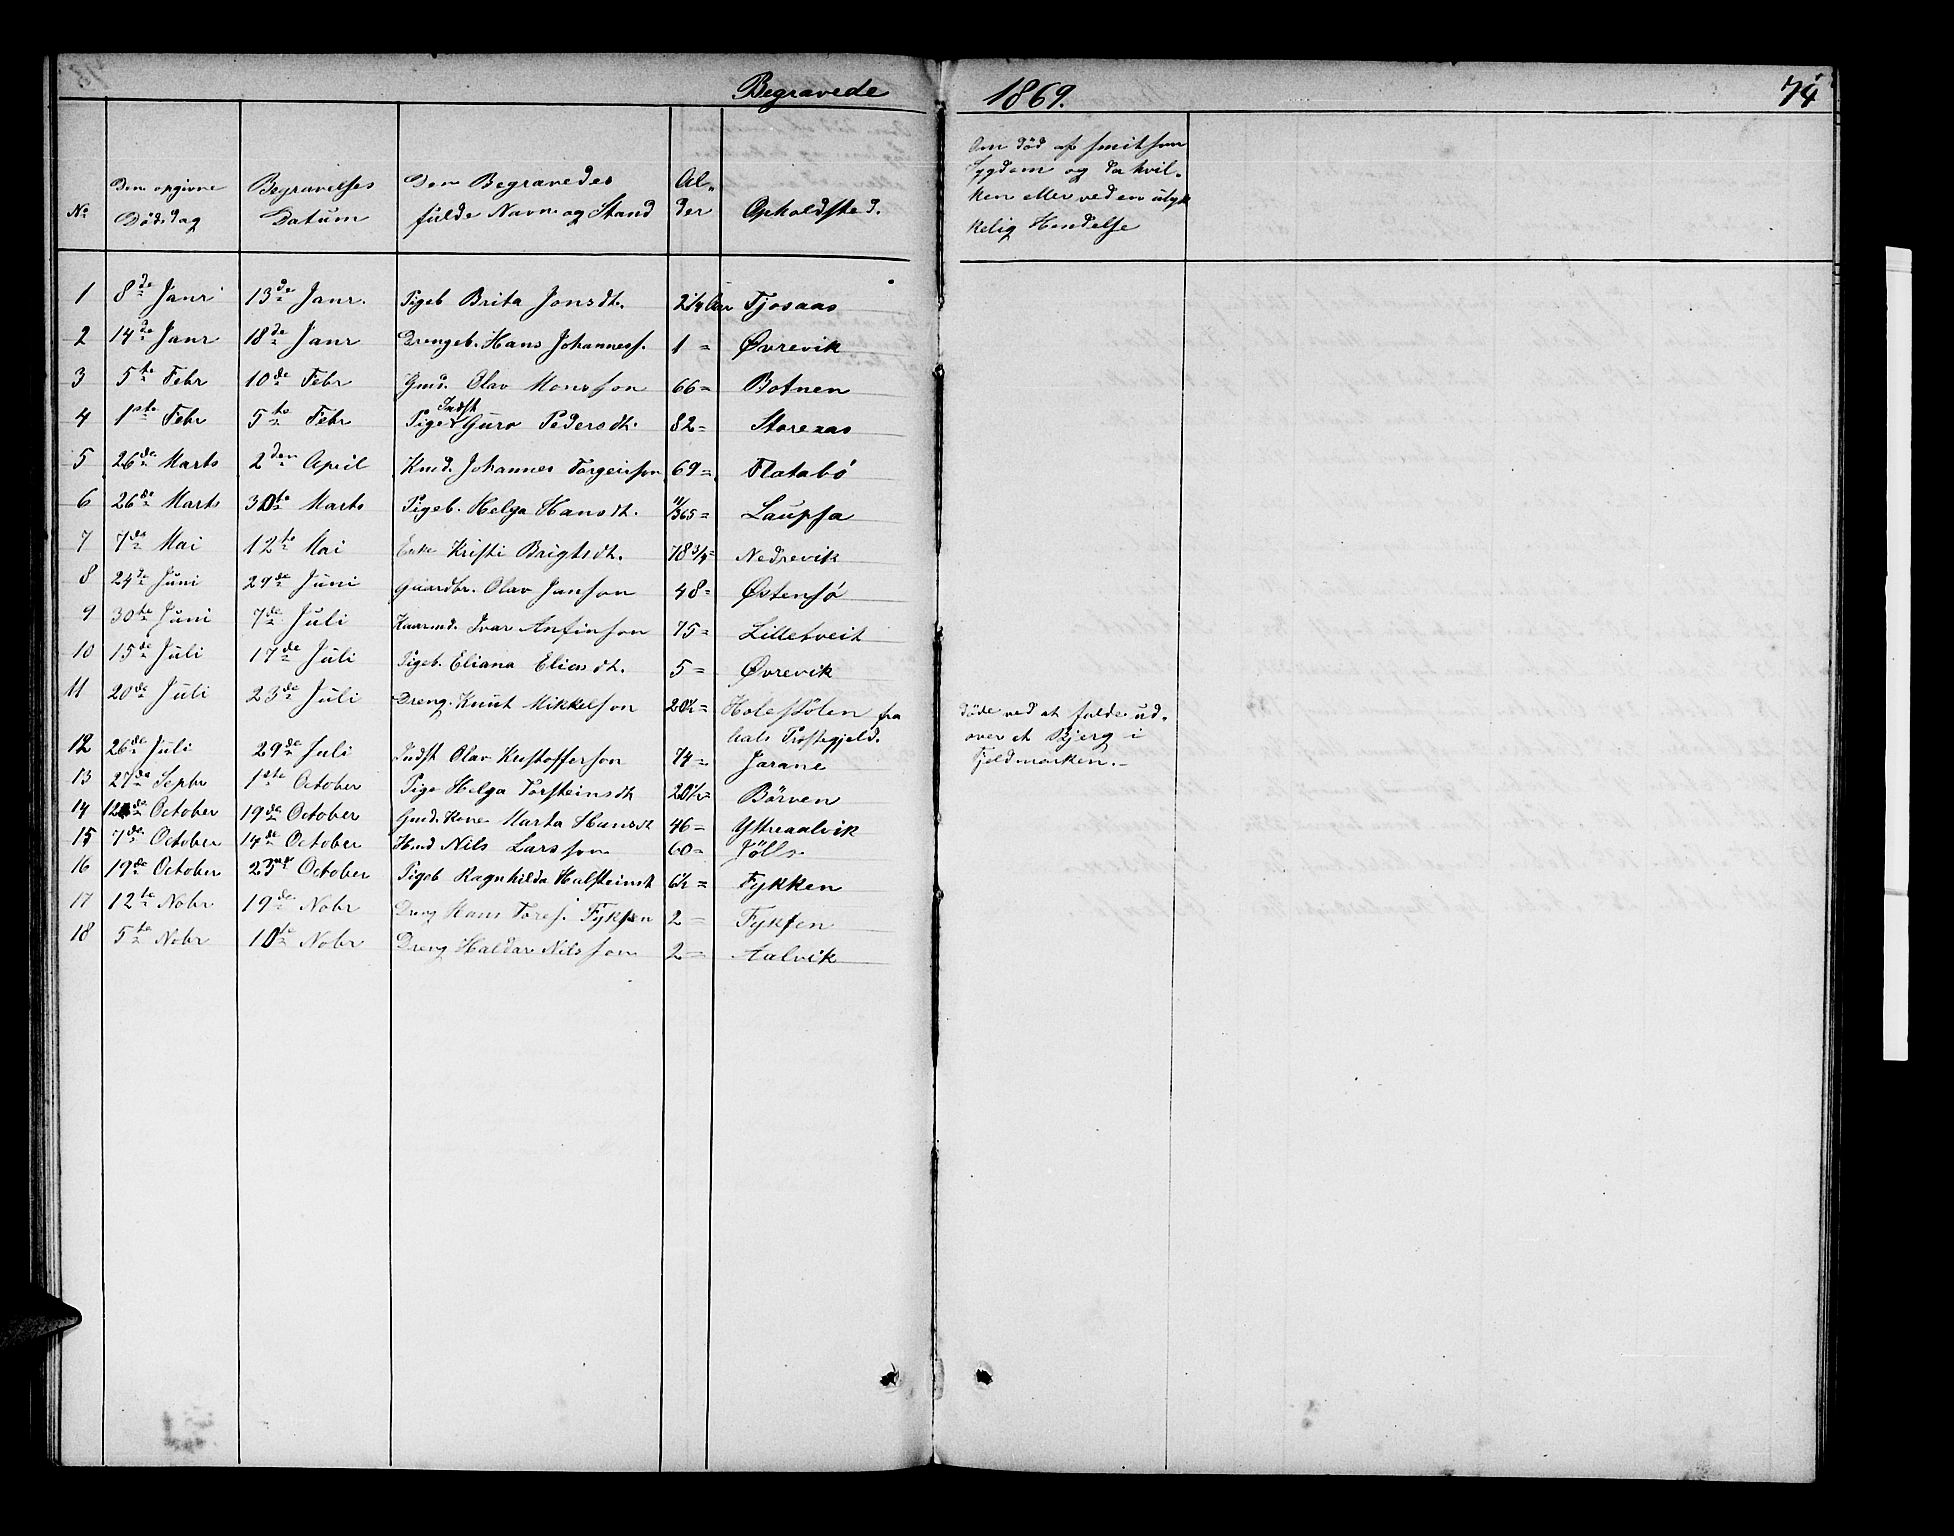 Begravede 1869. 74
No
Den opgivne Dödsdag
Begravelses Datum
Den Begravedes fulde Navn og Stand
Al- der
Opholdsted.
Om död af smitsom
Sygdom og da hvil-
ken eller ved en ulyk
kelig Hendelse
1 8de Janr 13de Janr. Pigeb Brita Jonsdt. 2 1/4 Aar Tjosaas
2 14de Janr 18de Janr Drengeb. Hans Johanness. 1 = Øvrevik
3 5te Febr 10de Febr Gmd. Olav Monsson 66 = Botnen
4 1ste Febr 5te Febr Pige Indst Guro Pedersdt. 82 = Storeaas
5 26de Marts 2den April Kmd. Johannes Torgeirson 69 = Flatabö
6 26de Marts 30te Marts Pigeb. Helga Hansdt. 11/365 = Laupsa
7 7de Mai 12te Mai Enke Kristi Brigtsdt. 78 3/4 = Nedrevik
8 24de Juni 29de Juni Gaardbr. Olav Janson 48 = Østensö
9 30te Juni 7de Juli Kaarmd. Ivar Anfinson 75 = Lilletveit
10 15de Juli 17de Juli Pigeb. Eliana Eliasdt. 5 = Øvrevik
11 20de Juli 23de Juli Dreng. Knut Mikkelson 20 1/2 = Holestölen fra
hals Præstegjeld.
döde ved at falde ud-
over et Bjerg i
Fjeldmarken.-
12 26de Juli 29de Juli Indst Olav Kristofferson 74 = Jarane
13 27de Septbr 1ste October Pige Helga Torsteinsdt 20 1/2 = Börven
14 12de October 19de October Gmd. Kone Marta Hansdt 46 = Yttreaalvik
15 7de October 14de October Hmd Nils Larsson 60 =
16 19de October 23de October Pigeb Ragnhilda Halsteinsdt 6 1/2 = Fykken
17 12te Nobr 19de Nobr Dreng Hans Tores. Fyksen 2 = Fyksen
18 5te Nobr 10te Nobr Dreng Haldor Nilsson 2 = Aalvik